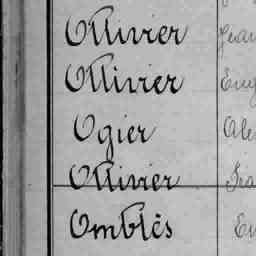 Ollivier Jean
Ollivier Eug
Ogier Ale
Ollivier Fra
Omblès Eu